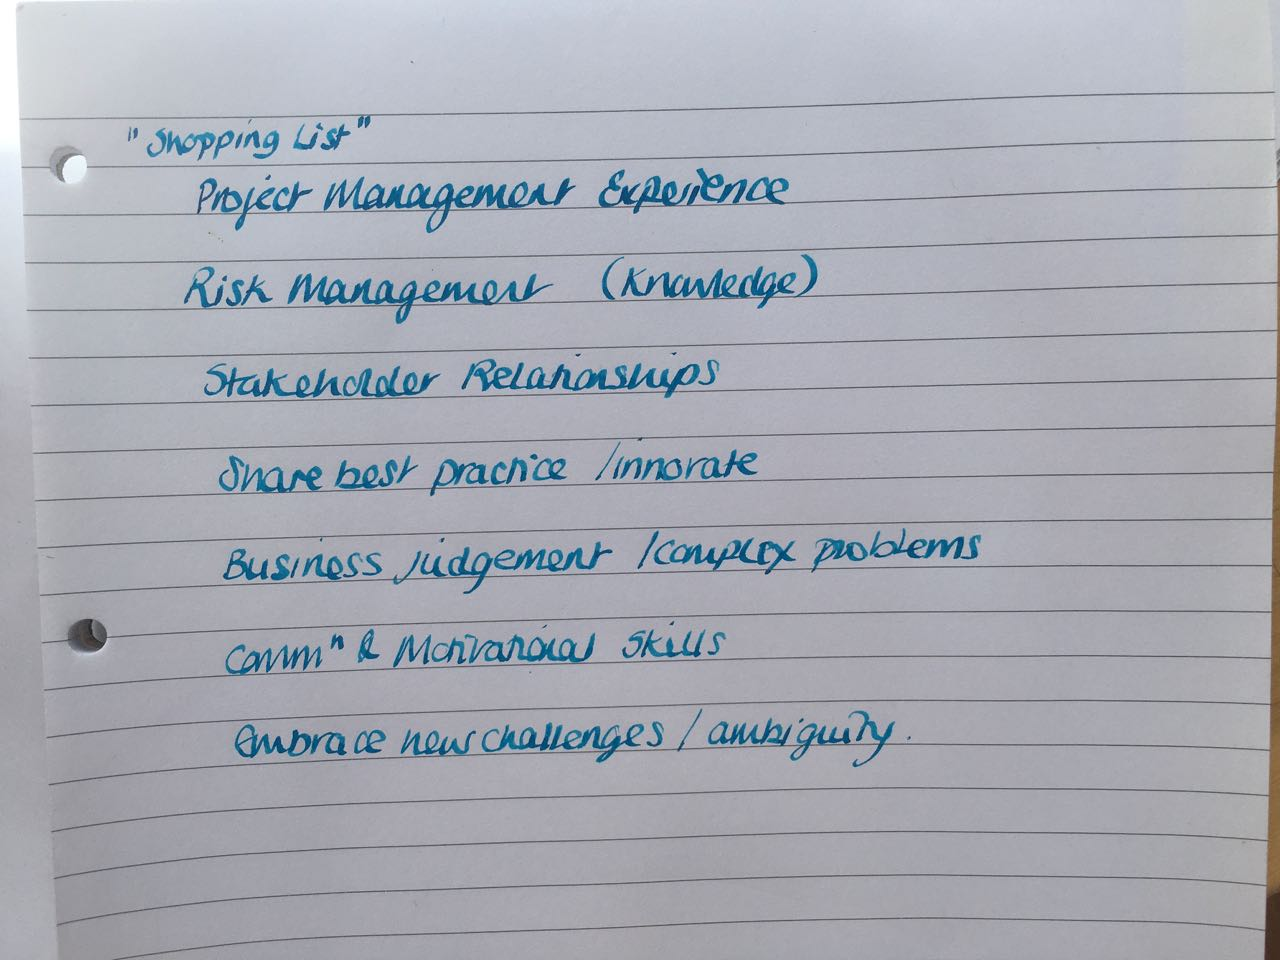 "Shopping List"
Project Management Experience
Risk Management (Knowledge)
Stakeholder Relationships
Share best practice /innovate
Business judgement /complex problems
Commⁿ & Motivational Skills
Embrace new challenges / ambiguity.